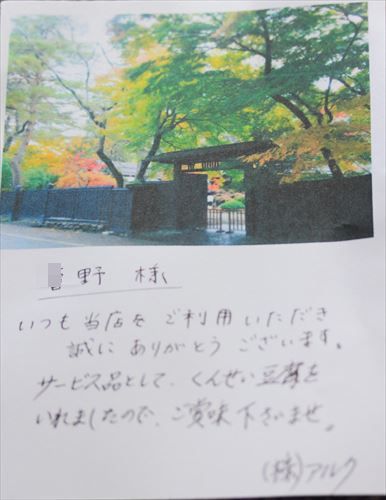 野 様
いつも当店を ご利用いただき
誠に ありがとう ございます。
サービス品として、くんせい豆腐を
いれましたので、ご賞味 下さいませ。
(株)アルク